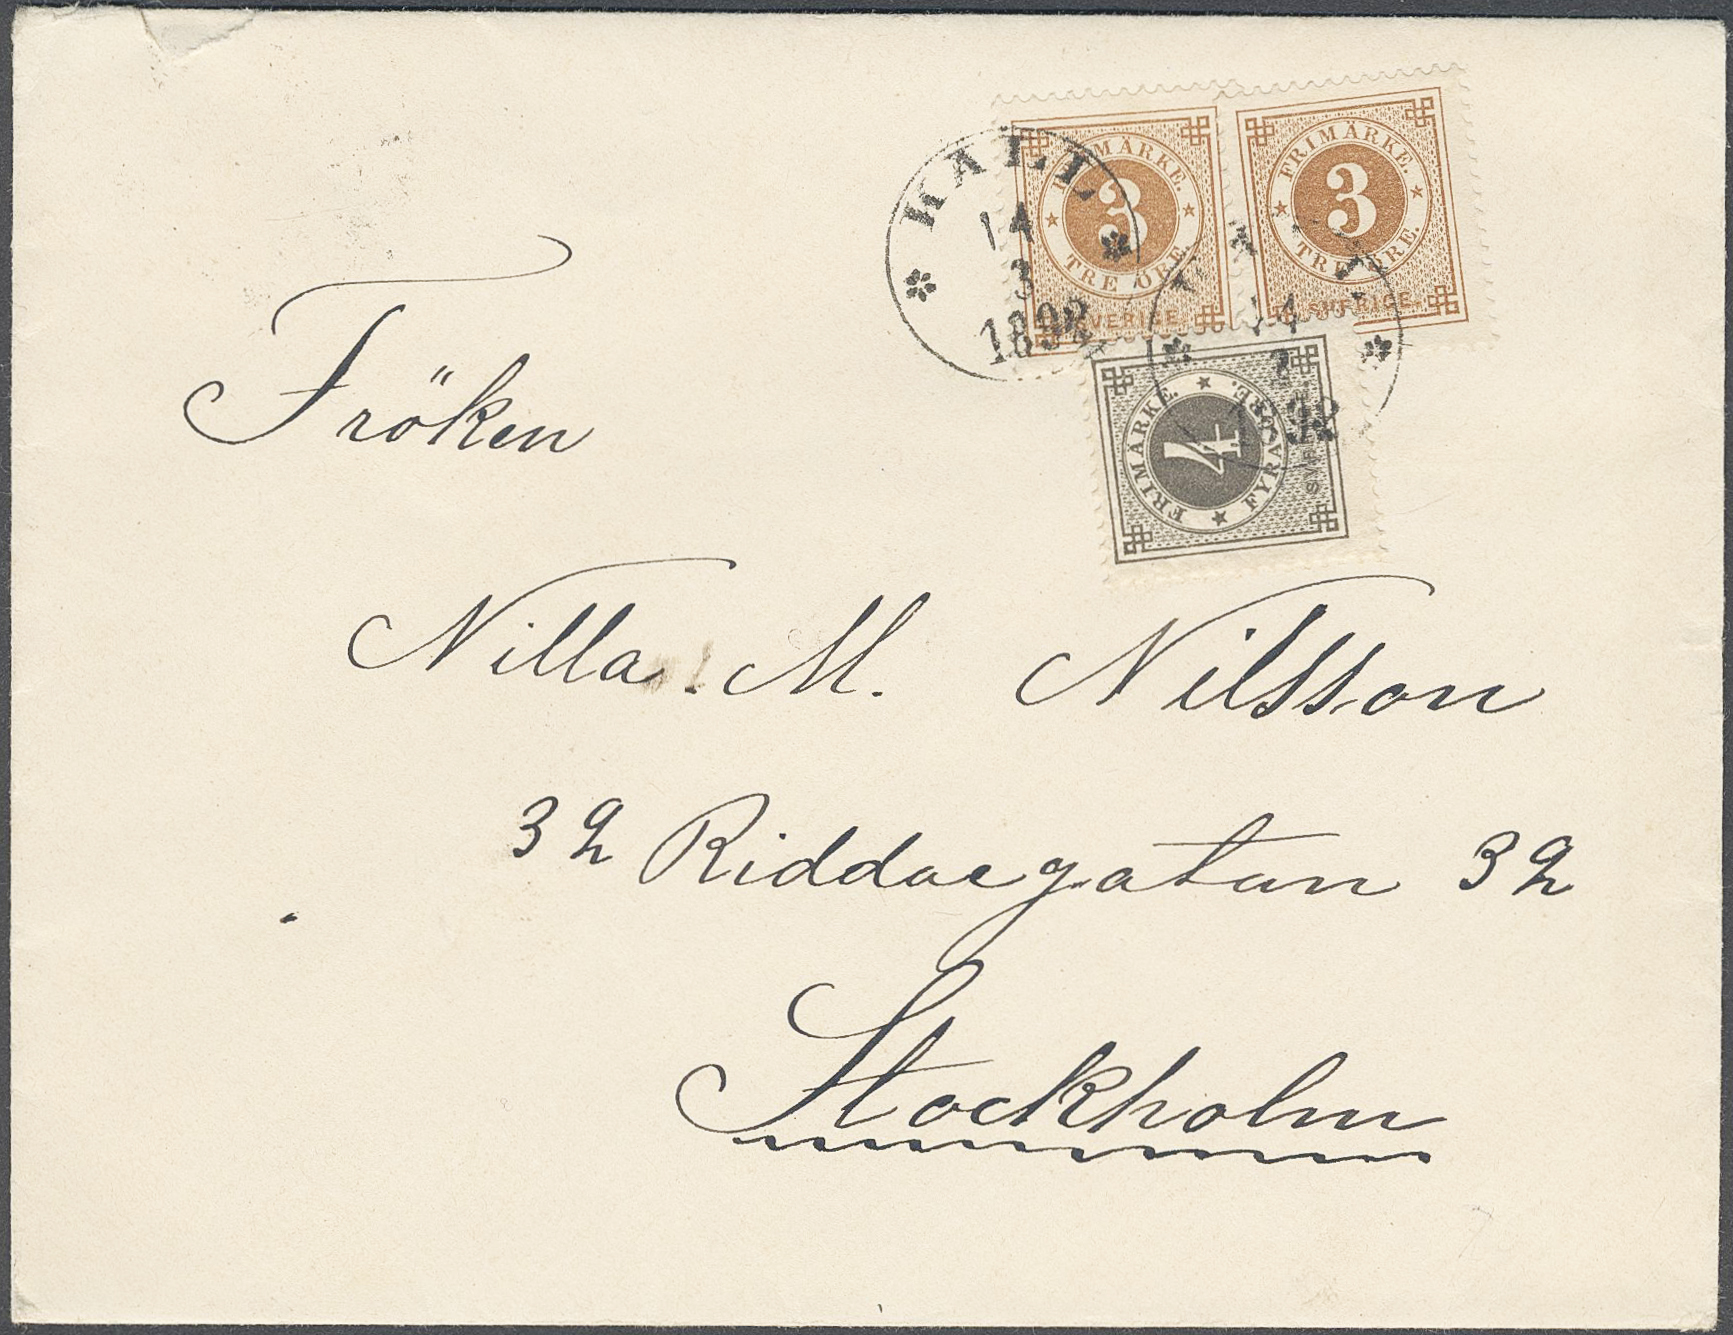 KALL
14
3
1892
FRIMÄRKE.
3
TRE ÖRE.
SVERIGE.
FRIMÄRKE.
3
TRE ÖRE.
SVERIGE.
14
1892
FRIMÄRKE.
4
FYRA ÖRE.
Fröken
Nilla. M. Nilsson
32 Riddaregatan 32
Stockholm